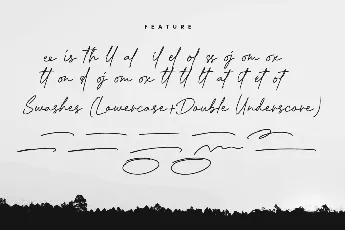 FEATURE
ee is th ll al il el ol ss oj om ox
tt on of oj om ox tt tl lt at it et ot
Swashes (Lowercase+Double Underscore)